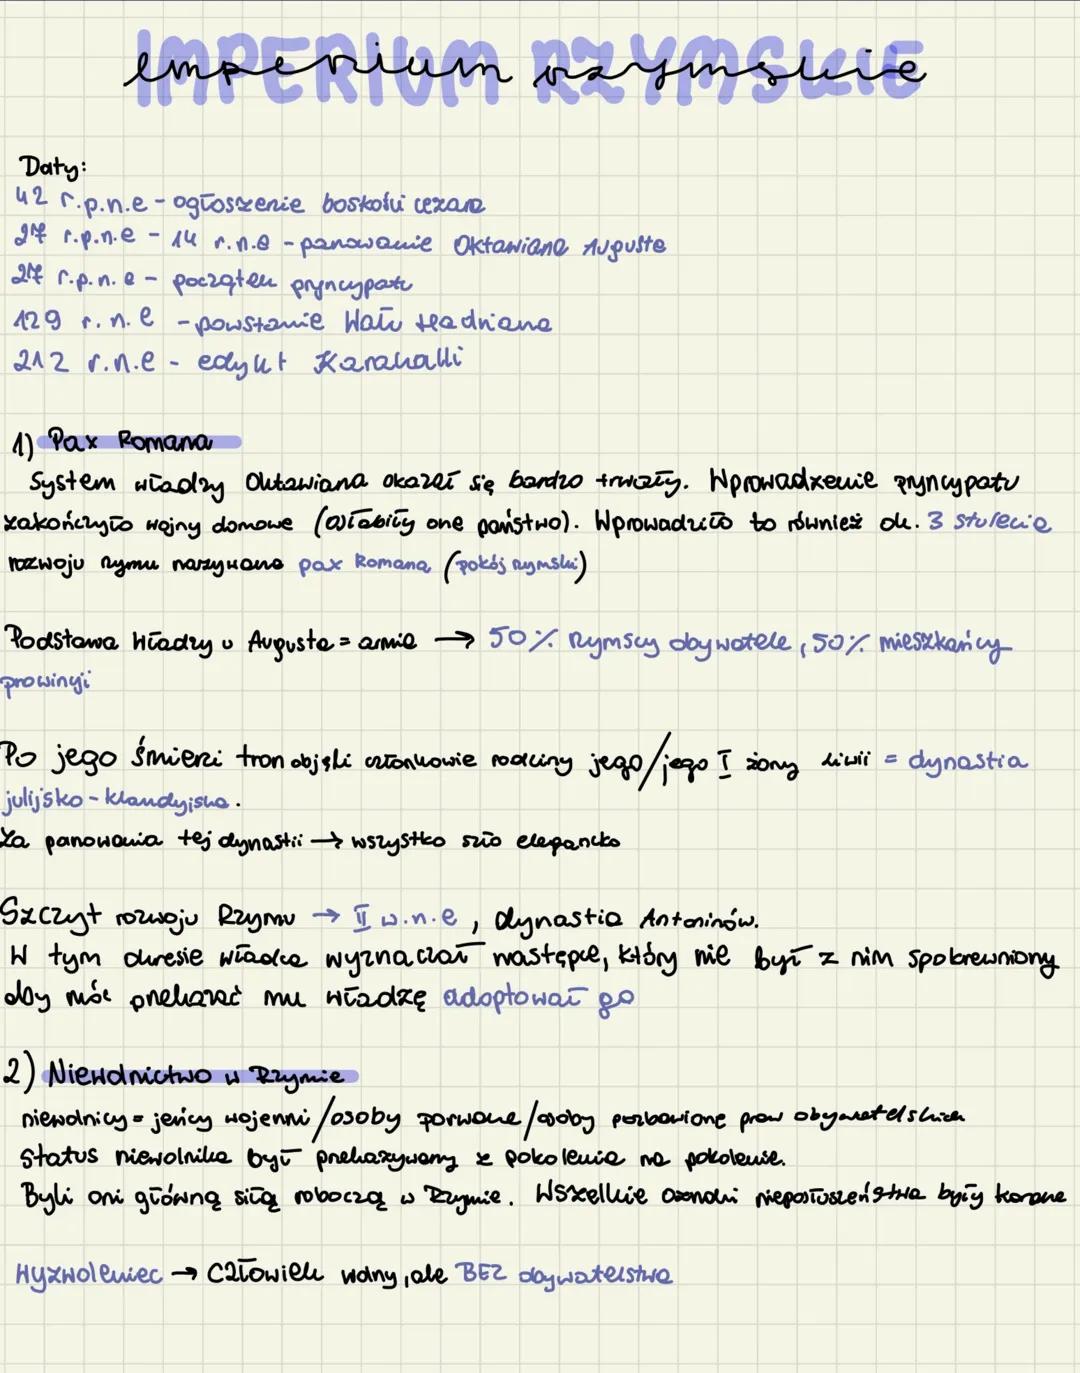 IMPERIUM RZYMSKIE
imperium rzymskie
Daty:
42 r.p.n.e - ogłoszenie boskości cezara
27 r.p.n.e - 14 r.n.e - panowanie Oktawiana Augusta
27 r.p.n.e - początek pryncypatu
129 r.n.e - powstanie Wału Hadriana
212 r.n.e - edykt Karakalli
1) Pax Romana
System władzy Oktawiana okazał się bardzo trwały. Wprowadzenie pryncypatu
zakończyło wojny domowe (osłabiły one państwo). Wprowadziło to również ok. 3 stulecia
rozwoju rzymu nazywane pax Romana (pokój rzymski)
Podstawa władzy u Augusta = armia → 50% rzymscy obywatele, 50% mieszkańcy
prowincji
Po jego śmierci tron objęli członkowie rodziny jego/jego I żony Liwii = dynastia
julijsko-klaudyjska.
Za panowania tej dynastii → wszystko szło elegancko
Szczyt rozwoju Rzymu → II w.n.e, dynastia Antoninów.
W tym okresie władca wyznaczał następcę, który nie był z nim spokrewniony
aby móc przekazać mu władzę adoptował go
2) Niewolnictwo w Rzymie
niewolnicy = jeńcy wojenni/osoby porwane/osoby pozbawione praw obywatelskich
Status niewolnika był przekazywany z pokolenia na pokolenie.
Byli oni główną siłą roboczą w Rzymie. Wszelkie oznaki nieposłuszeństwa były karane
Wyzwoleniec → człowiek wolny, ale BEZ obywatelstwa